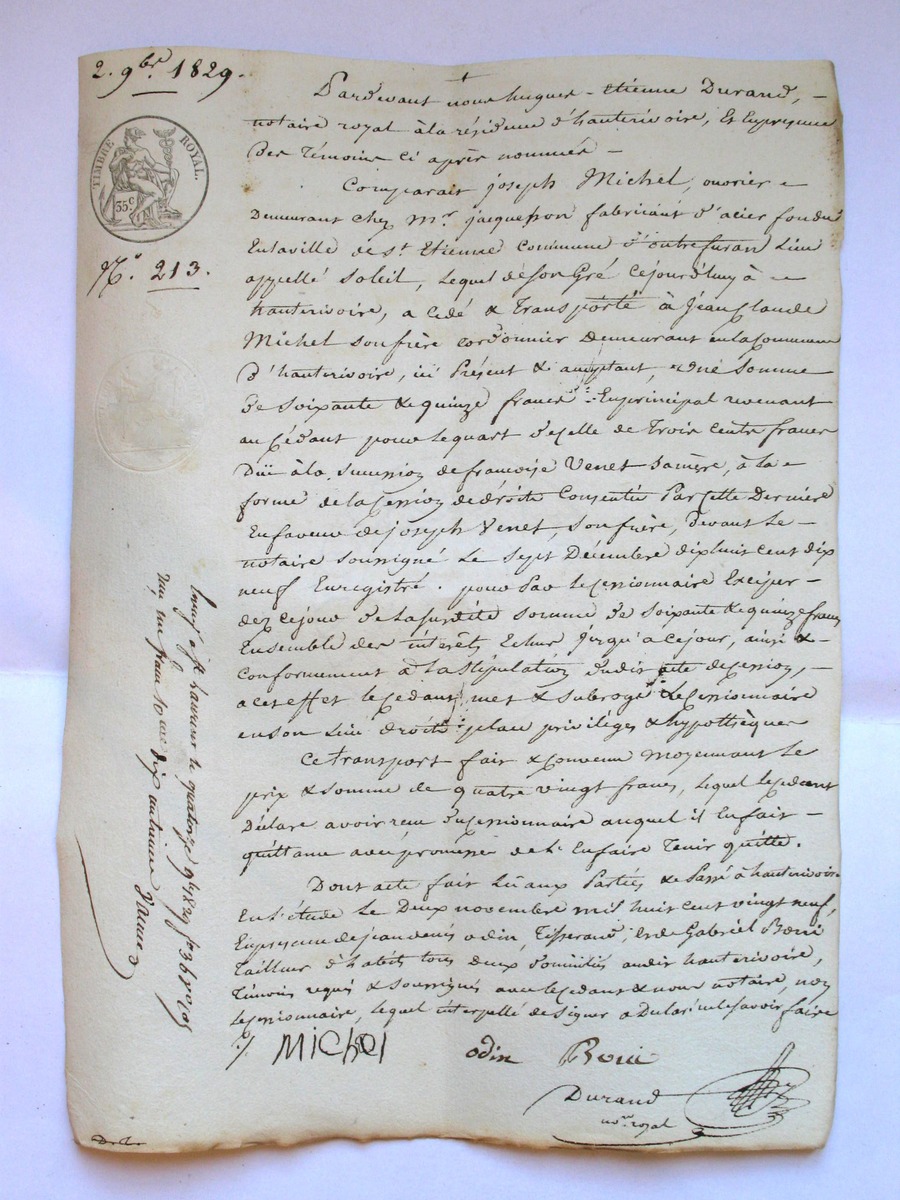 2. 9bre 1829.
TIMBRE ROYAL.
35 c
N.° 213.
Pardevant nous hugues - etienne Durand, -
notaire royal à la résidence d'hauterivoire, Et En presence
Des Témoins Ci après nommés -
Comparait joseph Michel, ouvrier -
Demeurant chez Mr. jacquesson fabricant d'acier fondu
En la ville de St Etienne Commune d'outrefuran Lieu
appellé Soleil, Lequel de Son Gré Cejourd'huy à -
hauterivoire, a Cédé & Transporté à Jean Claude
Michel Son frère Cordonnier Demeurant en la Commune
d'hauterivoire, ici Présent & acceptant, une Somme
de Soixante & quinze francs En principal revenant
au Cédant pour Le quart d'icelle de Trois Cents francs
Düe à la succession de françoise Venet Sa mère, à la -
forme de la Cession de droits Consentie Par cette Dernière
En faveur de joseph Venet, Son frère, Devant Le -
notaire Soussigné Le Sept Décembre dix huit cent dix
neuf Enregistré. pour Par le Cessionnaire Exciper -
dez Ce jour de La susdite Somme de Soixante & quinze francs
Ensemble des intérêts Echus jusqu'a Ce jour, ainsi & -
Conformement à La Stipulation dudit acte de Cession, -
a Cet effet Le Cedant met & Subroge Le Cessionnaire
en son Lieu droits place privilèges & hypothèques
Ce transport fait & Convenu moyennant Le
prix & Somme de quatre vingt francs, Lequel Le Cedant
Déclare avoir reçu du Cessionnaire auquel il En fait -
quittance avec promesse de L'En faire Tenir quitte.
Dont acte fait Lu aux Parties & Passé à hauterivoire
En L'étude Le Deux novembre mil huit Cent vingt neuf,
En presence de jean denis odin, Tisserand, & de Gabriel Boni
Tailleur d'habits tous deux Domiciliés audit hauterivoire,
Témoins requis & Soussignés avec le Cedant & nous notaire, non
Le Cessionnaire, Lequel interpellé de Signer a Déclaré ne le Savoir faire
Michel odin Boni
Durand
nore royal
Enregistré le quatorze 9bre 1829
reçu un franc dix centimes